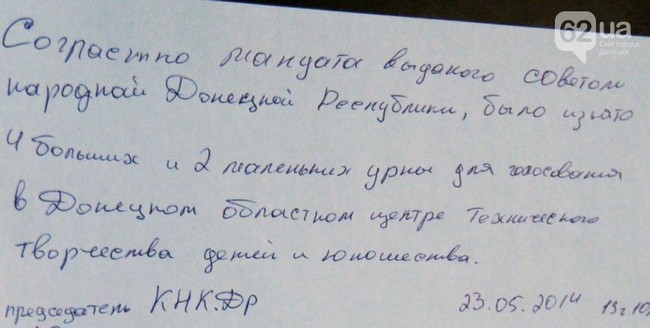 62.ua
Сайт города
Донецка
Согластно мандата выданого советом
народнай Донецкой Республики, было изъято
4 больших и 2 маленьких урны для голосования
в Донецком областном центре Технического
творчества детей и юношества.
председатель КНК.Др 23.05.2014 13г.10